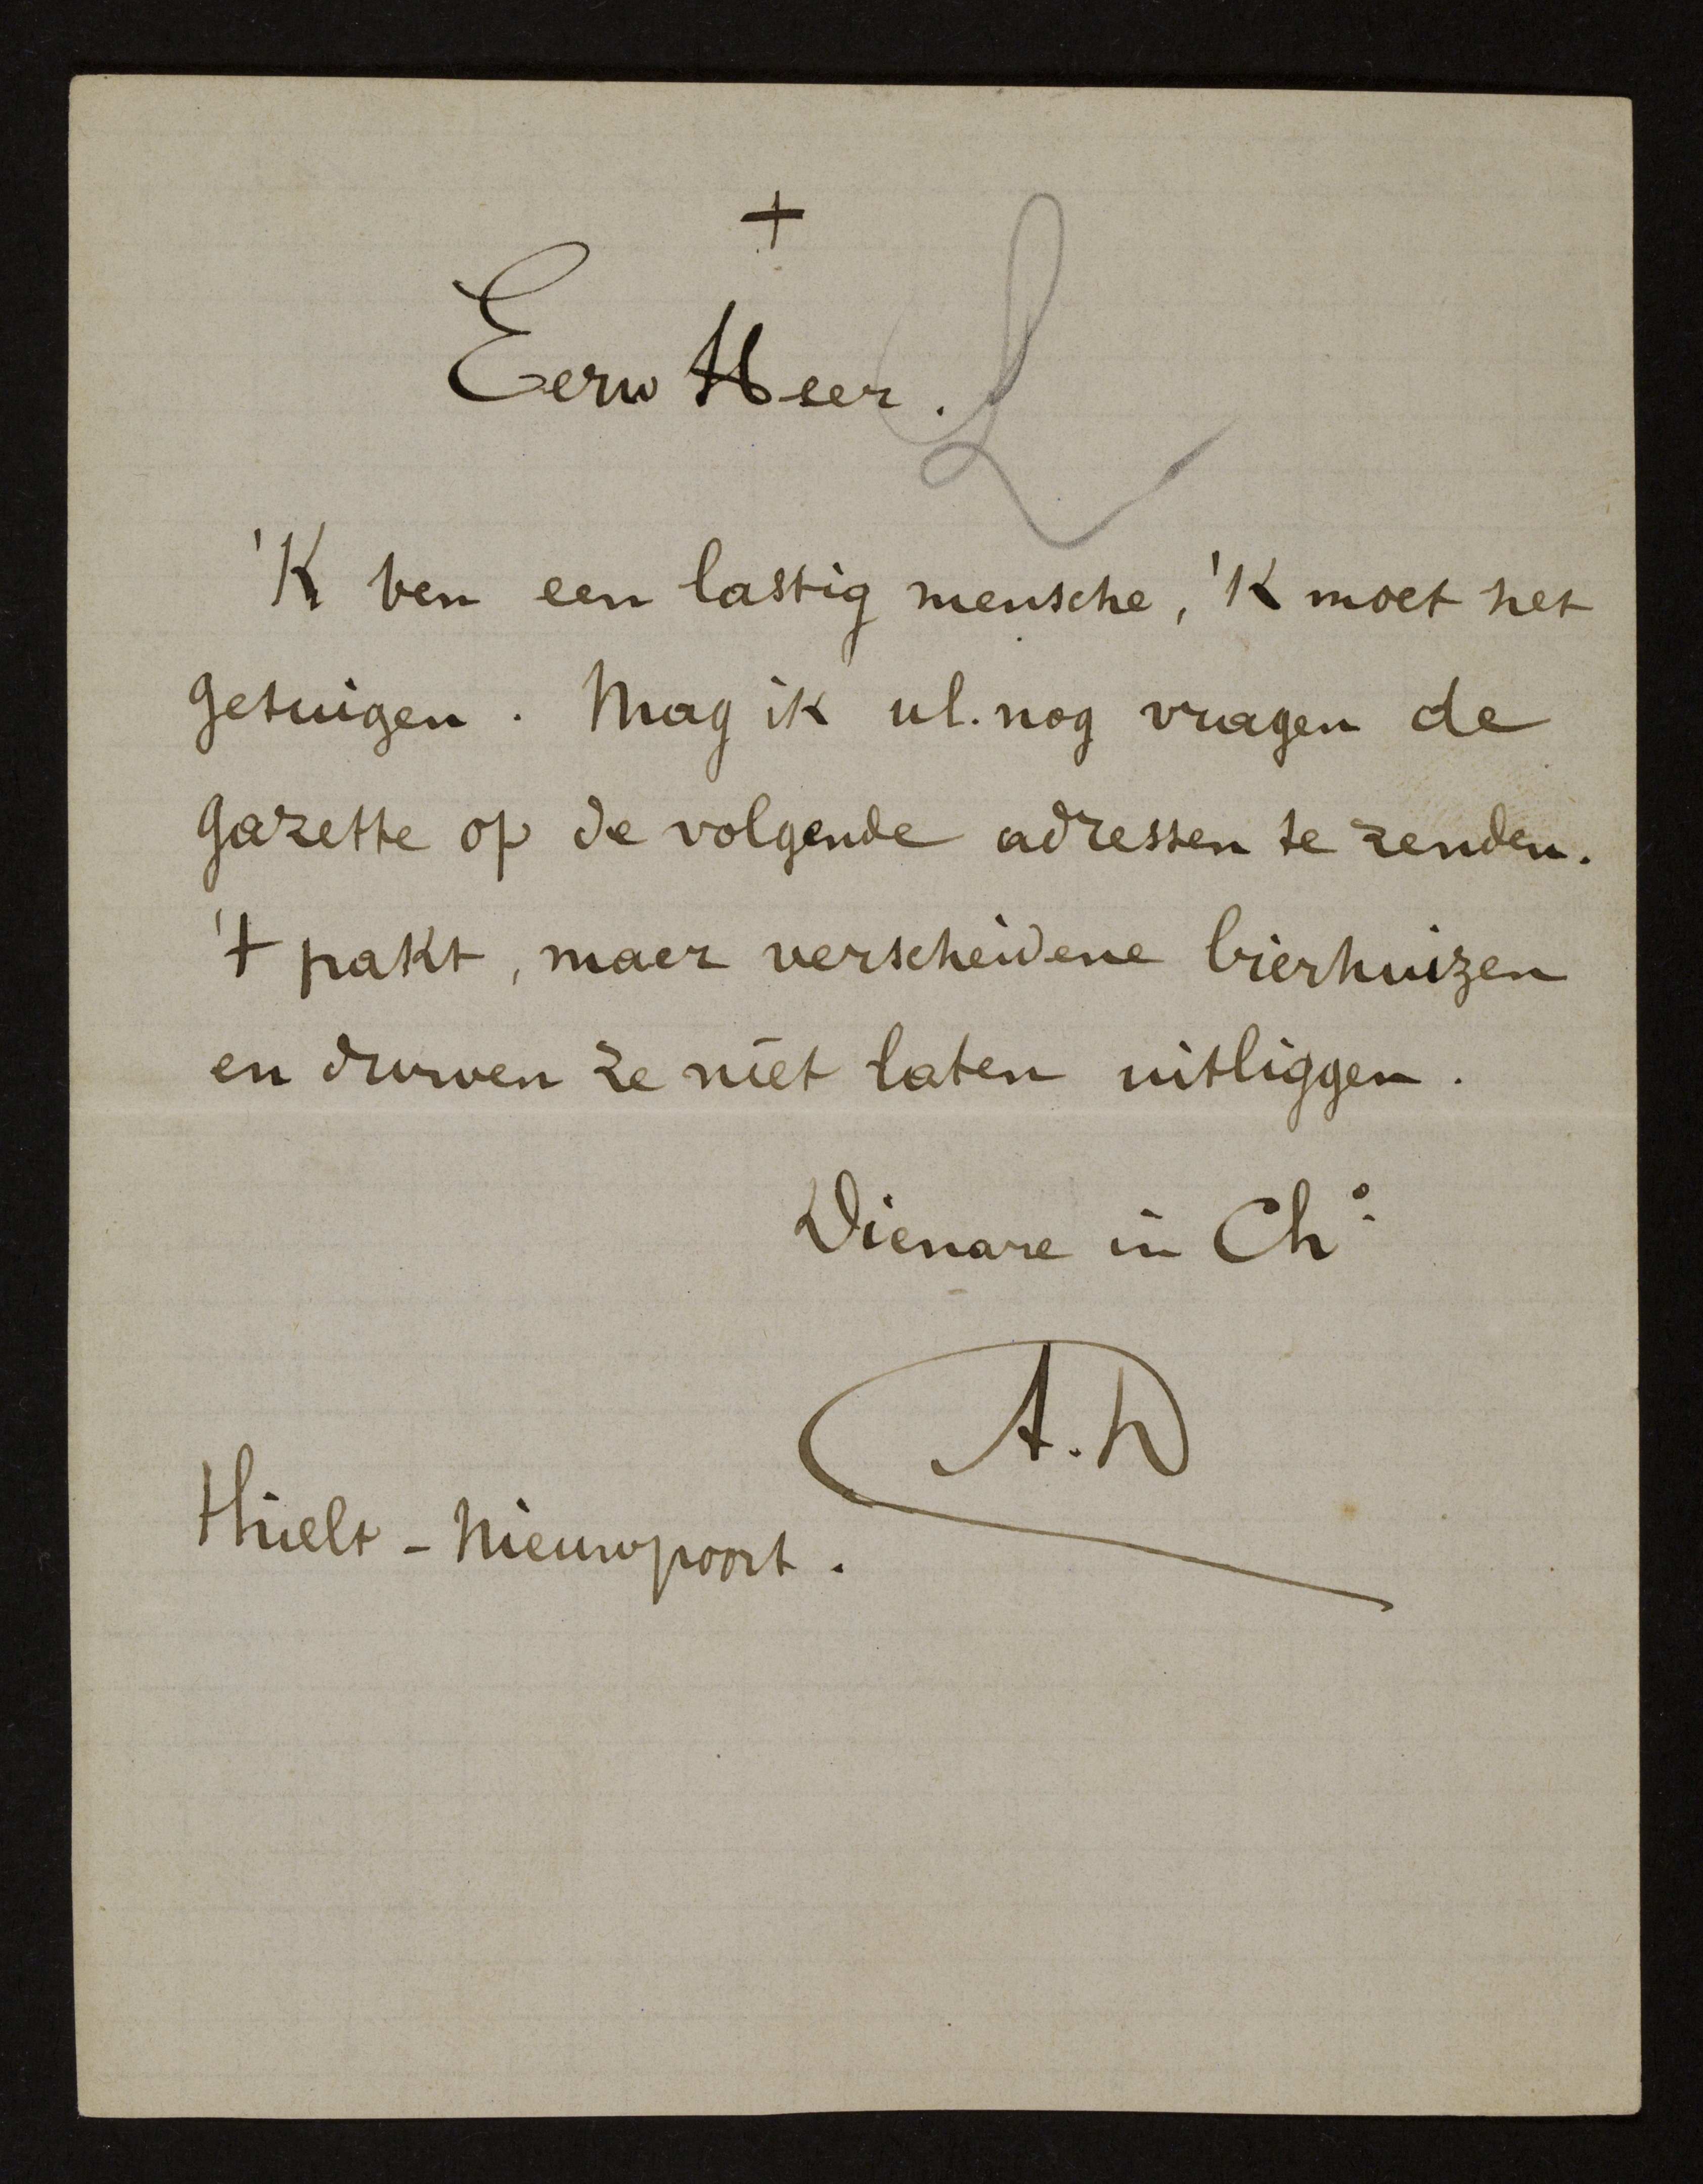 +
Eerw Heer.
'K ben een lastig mensche, 'K moet het
getuigen. Mag ik ul. nog vragen de
gazette op de volgende adressen te zenden.
't pakt, maer verscheidene bierhuizen
en durven ze niet laten uitliggen.
Dienare in Ch°.
A. D
Thielt - Nieuwpoort.